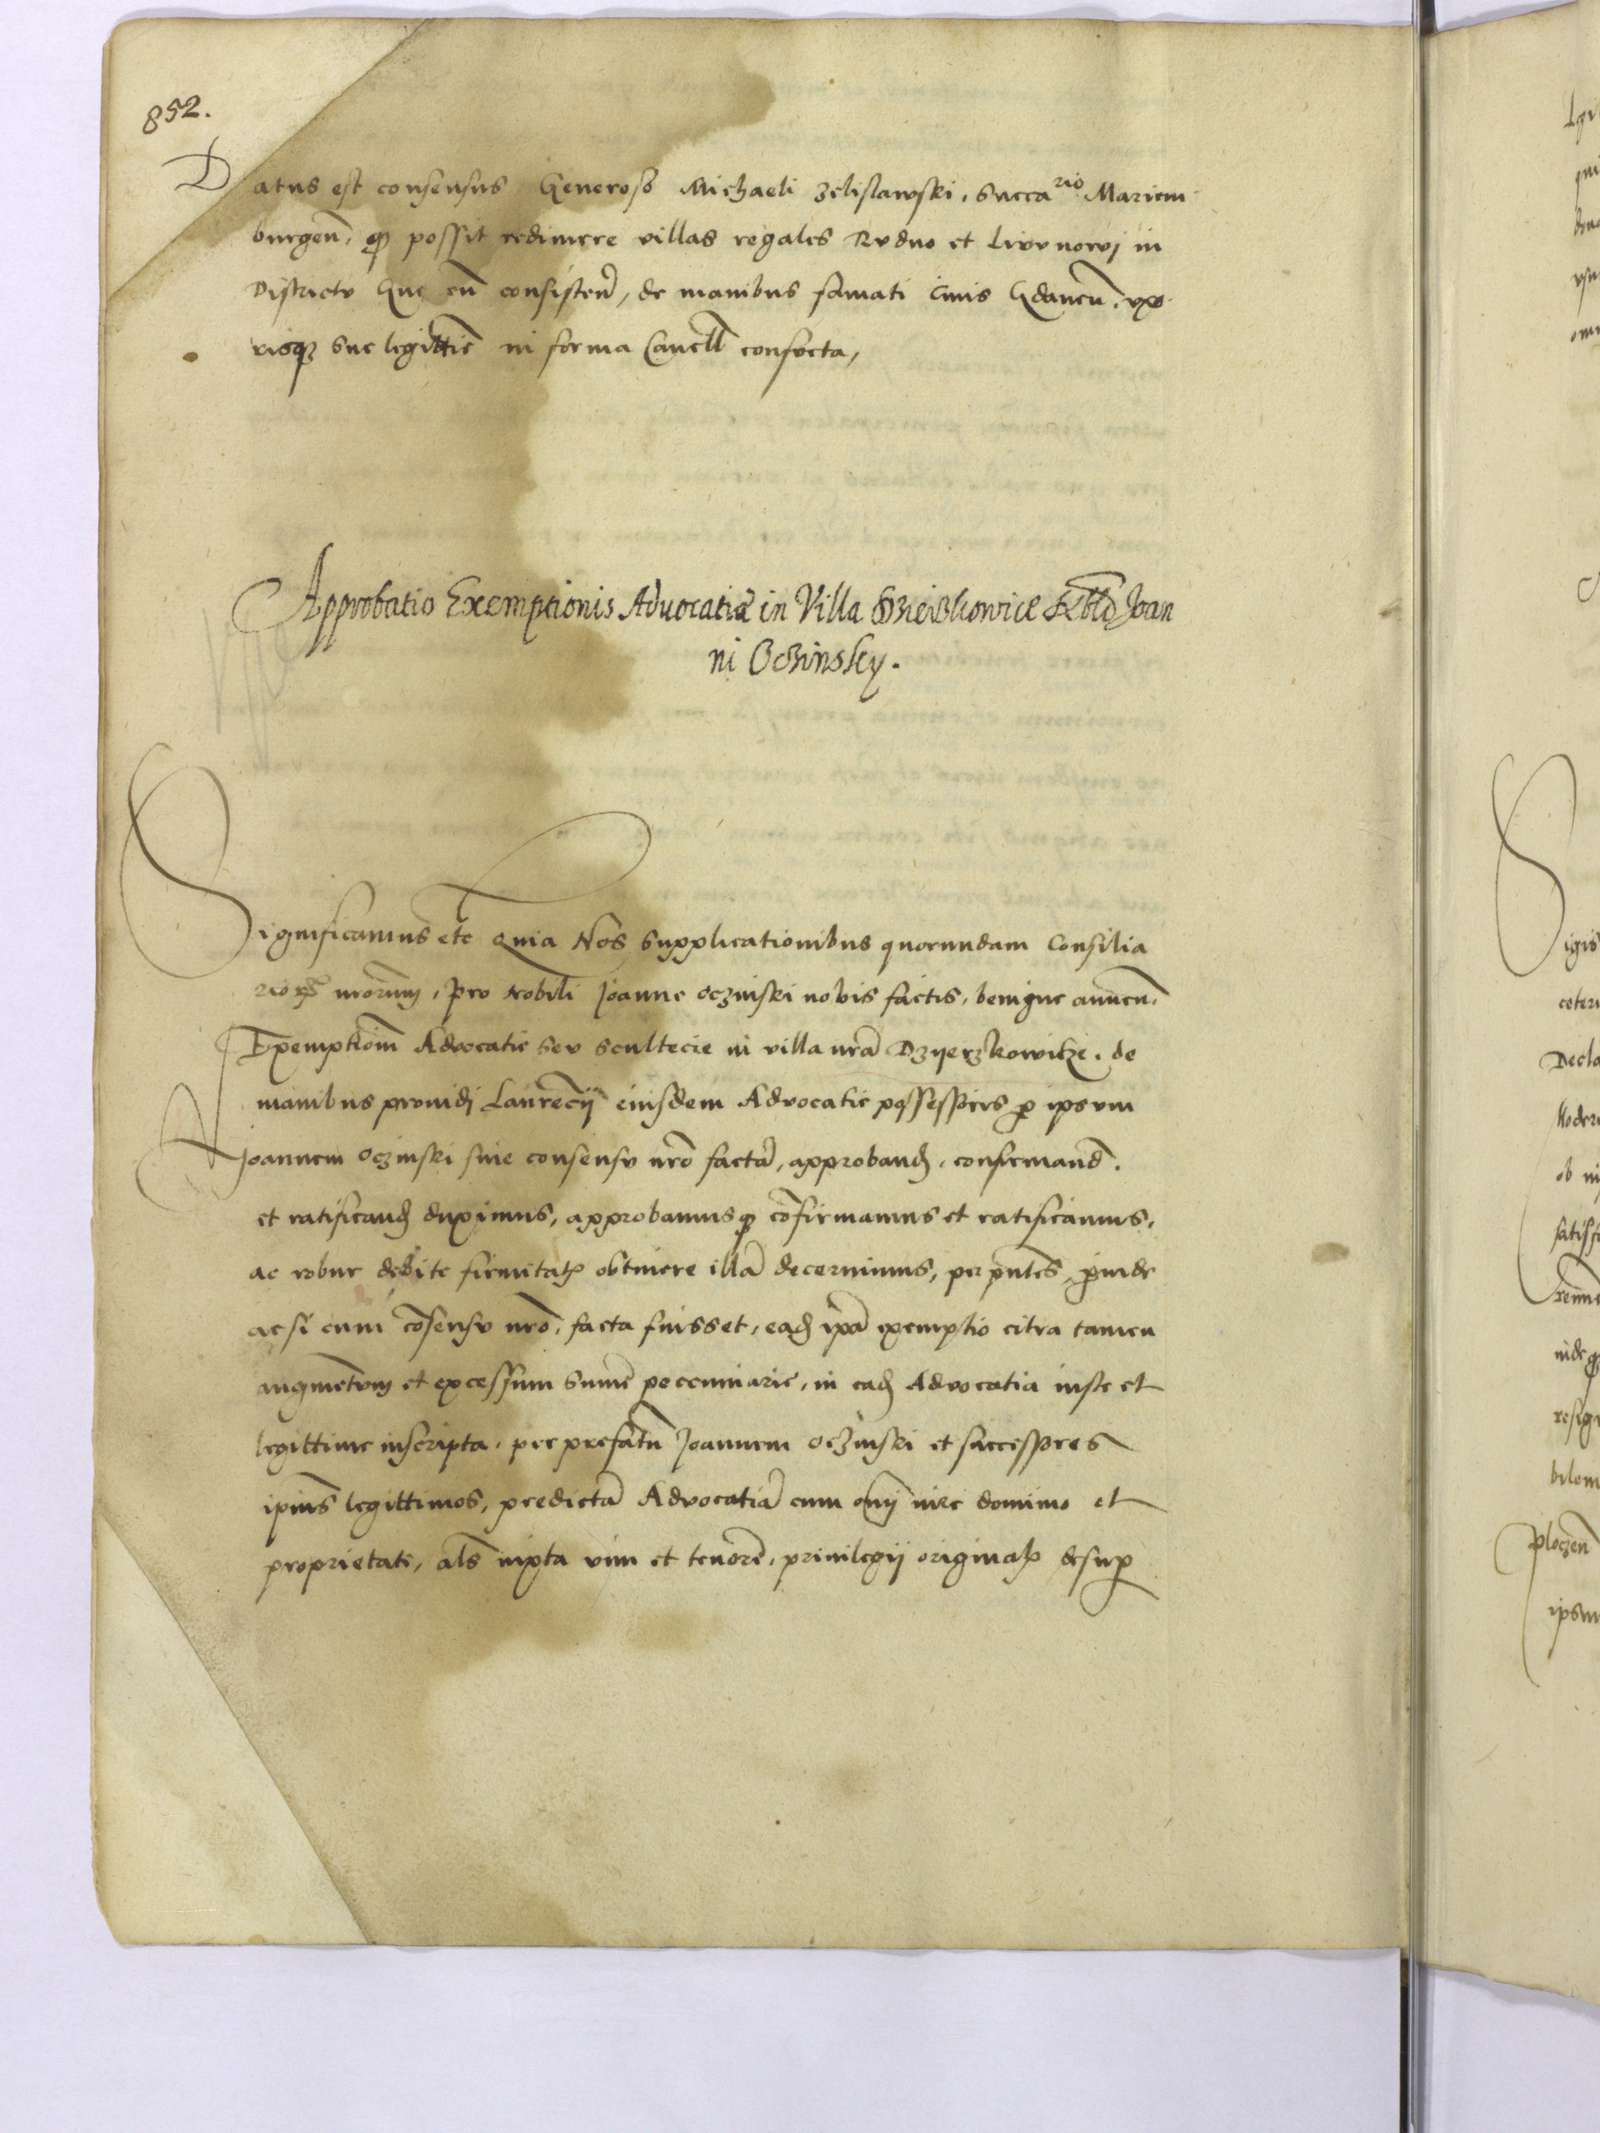 852.
Datus est consensus Generoso Michaeli Zelislawski, Succa rio Mariem
burgen, qȝ possit redimere villas regales Rudno et
Districtu Gne en consisten, de manibus famati Civis Gdanen, vxo
risqȝ sue legittie in forma Cancell confecta,
Approbatio Exemptionis Advocatiæ in Villa Joan
ni Oczinsky.
Significamus etc Quia Nos Supplicationibus quorundam Consilia
rior nrorum, pro Nobili Joanne Oczinski nobis factis, benigne annuen,
Exemptiom Advocatie seu scultecie in villa nra Dzyerzkowicze, de
manibus providi Laurecij eiusdem Advocatie possessoris p ipsum
Joannem Oczinski sine consensu nro facta, approband, confirmand,
et ratificand duximus, approbamusqȝ cofirmamus et ratificamus,
ac robur debite firmitatis obtinere illa decernimus, per pntes, pinde
ac si cum cosensu nro, facta fuisset, ead ipa exemptio citra tamen
augmetum et excessum sume pecuniarie, in ead Advocatia iuste et
legittime inscripta, per prefatu Joannem Oczinski et successores
ipius legittimos, predicta Advocatia cum oni iure dominio et
proprietate, als iuxta vim et tenore, privilegij originalis desup